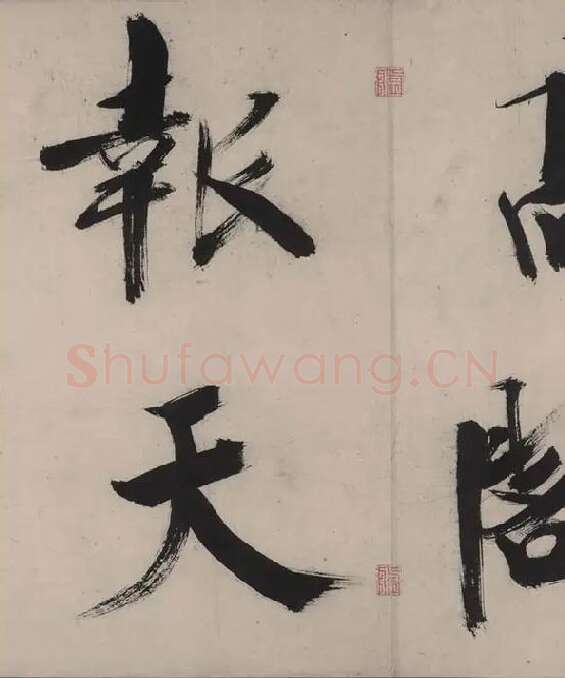 高閣
報天
Shufawang.CN